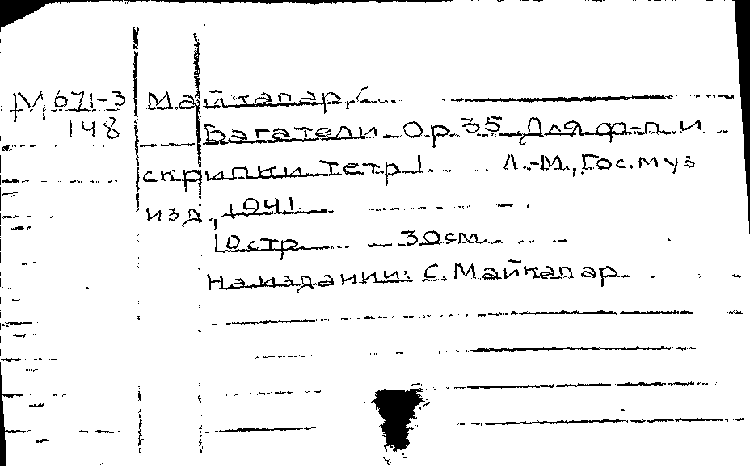 М 671-3 Майкапар, С.
148 Багатели. Ор. 35. Для ф-п. и
скрипки. Тетр 1. Л.-М., Гос. муз
изд., 1941
10 стр. 30 см.
На издании: С. Майкапар